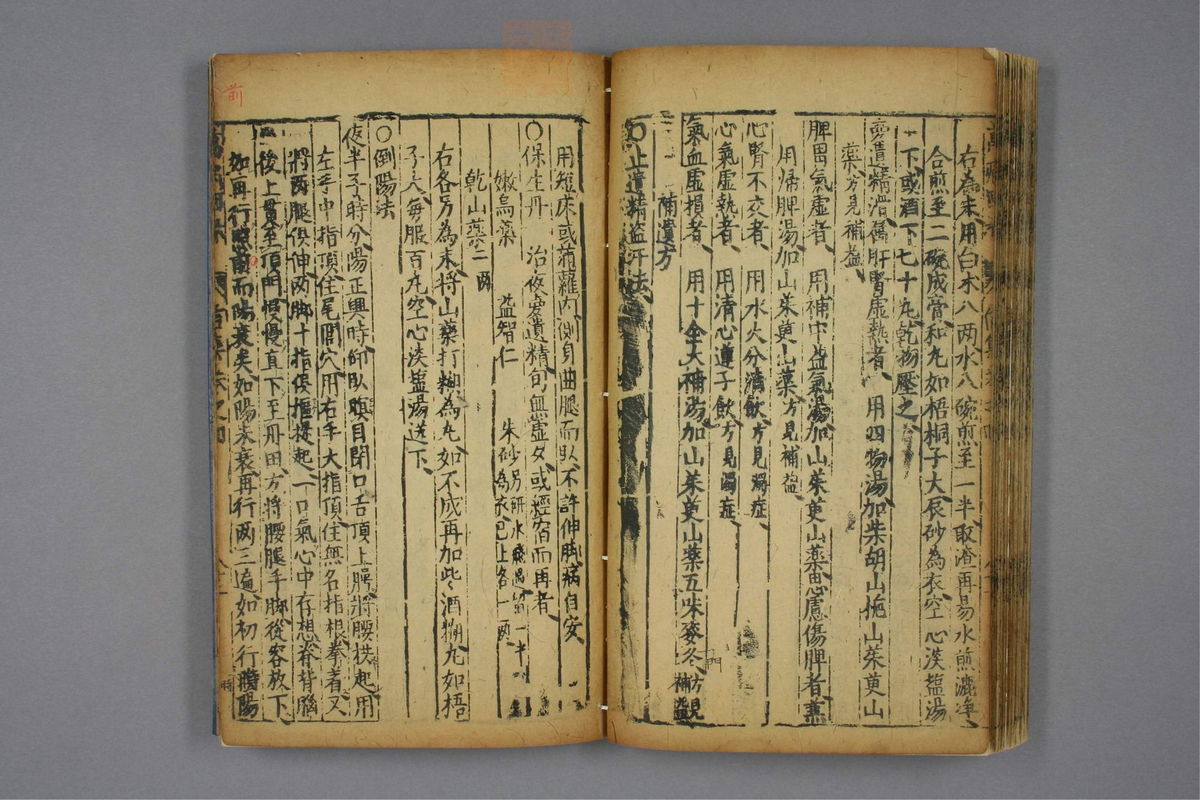 右為末用白朮八兩水八碗煎至一半取渣再易水煎漉凈
合煎至二碗成膏和丸如梧桐子大辰砂為衣空心淡鹽湯
下或酒下七十丸乾物壓之
遺精 肝腎虛熱者 用四物湯加柴胡山梔山茱萸山
藥方見補益
脾胃氣虛者 用補中益氣湯加山茱萸山藥思慮傷脾者兼
用歸脾湯加山茱萸山藥方見補益
心腎不交者 用水火分清飲方見濁症
心氣虛熱者 用清心蓮子飲方見濁症
氣血虛損者 用十全大補湯加山茱萸山藥五味麥冬方見補益
補遺方
○止遺精盜汗法
用短床或蒲蘿內側身曲腿而臥不許伸脚病自安
○保生丹 治夜夢遺精旬血虛夕或經宿而再者
嫩烏藥 益智仁 朱砂另研水飛過留一半為衣已上各一兩
乾山藥二兩
右各另為末將山藥打糊為丸如不成再加此酒糊丸如梧
子大每服百丸空心淡鹽湯送下
○倒陽法
夜半子時分陽正興時仰臥瞑目閉口舌頂上腭將腰拱起用
左手中指頂住尾閭穴用右手大指頂住無名指根拳著又
將兩腿俱伸兩脚十指俱摳提起一口氣心中存想脊背腦
後上貫至頂門慢慢直下至丹田方將腰腿手脚從容放下
如再行照前而陽衰矣如陽未衰再行兩三遍如初行時陽
前
門
時